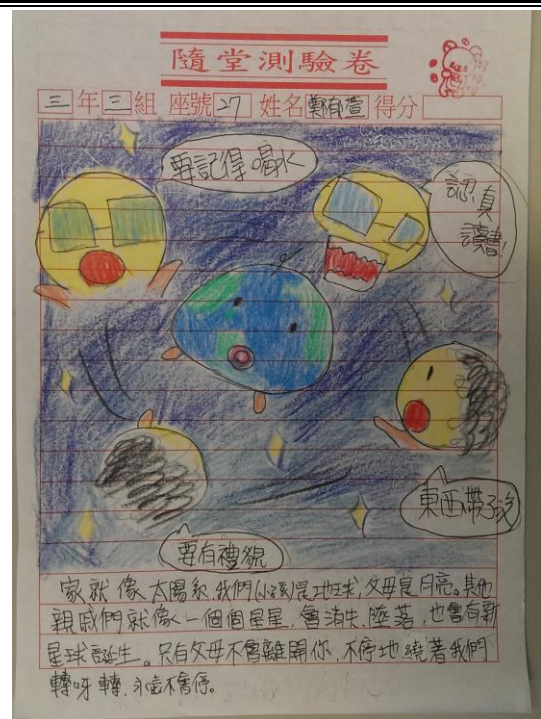 隨堂測驗卷
三年三組 座號27 姓名鄭郁萱 得分
要記得喝水
認真
讀書!
東西帶了沒
要有禮貌
家就像太陽系,我們(小孩)是地球,父母是月亮。其他
親戚們就像一個個星星,會消失、墜落,也會有新
星球誕生。只有父母不會離開你,不停地繞著我們
轉呀轉,永遠不會停。